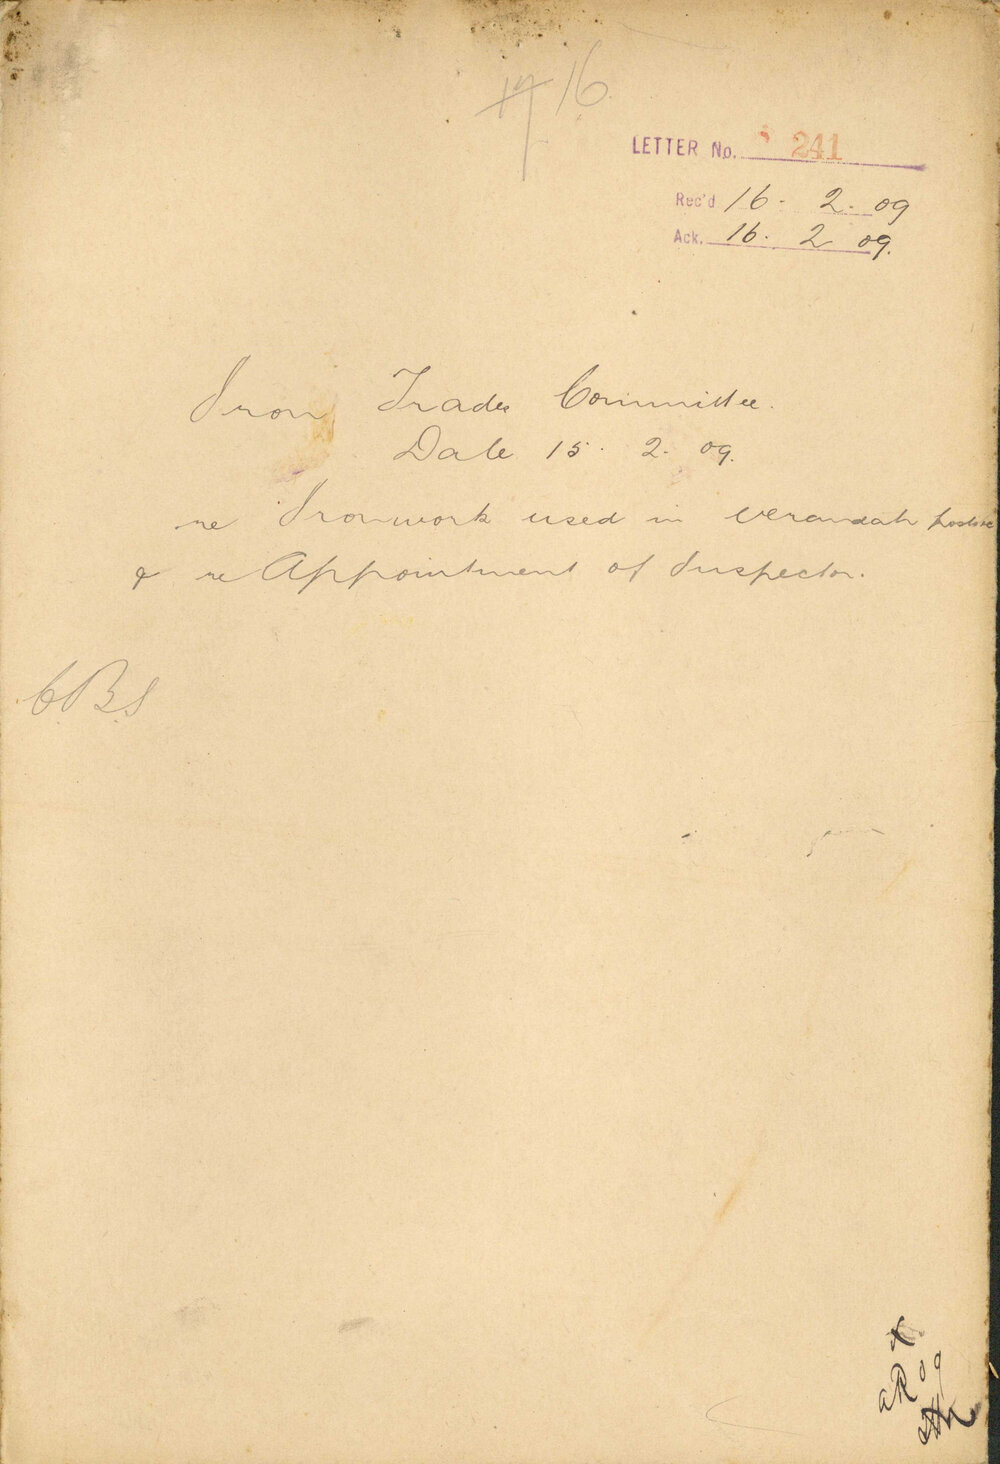 16
LETTER No. 241
Rec'd 16. 2. 09
Ack. 16. 2. 09.
Iron Trades Committee.
Date 15. 2. 09.
re Ironwork used in verandah posts
& re Appointment of Inspector.
C.B.S